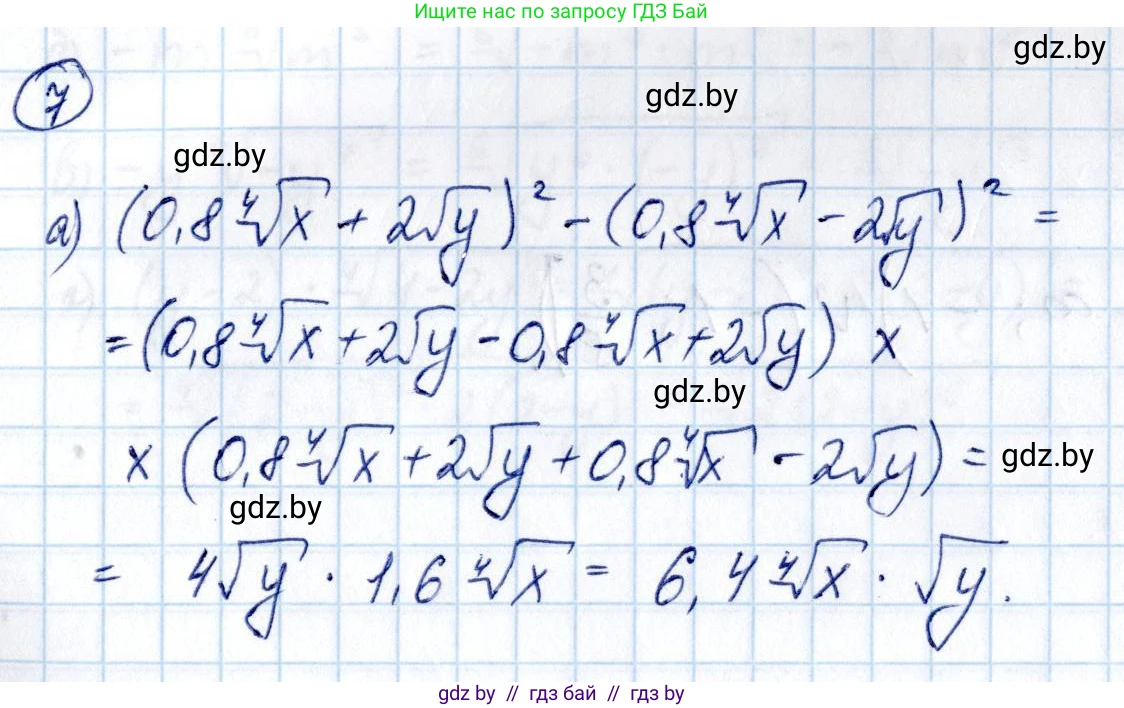 Ищите нас по запросу ГДЗ Бай
gdz.by
7
gdz.by
gdz.by
а) (0,8 ∜x + 2√y)² - (0,8 ∜x - 2√y)² =
= (0,8 ∜x + 2√y - 0,8 ∜x + 2√y) x
gdz.by
x (0,8 ∜x + 2√y + 0,8 ∜x - 2√y) = gdz.by
gdz.by
= 4√y · 1,6 ∜x = 6,4 ∜x · √y.
gdz.by // гдз бай // гдз by